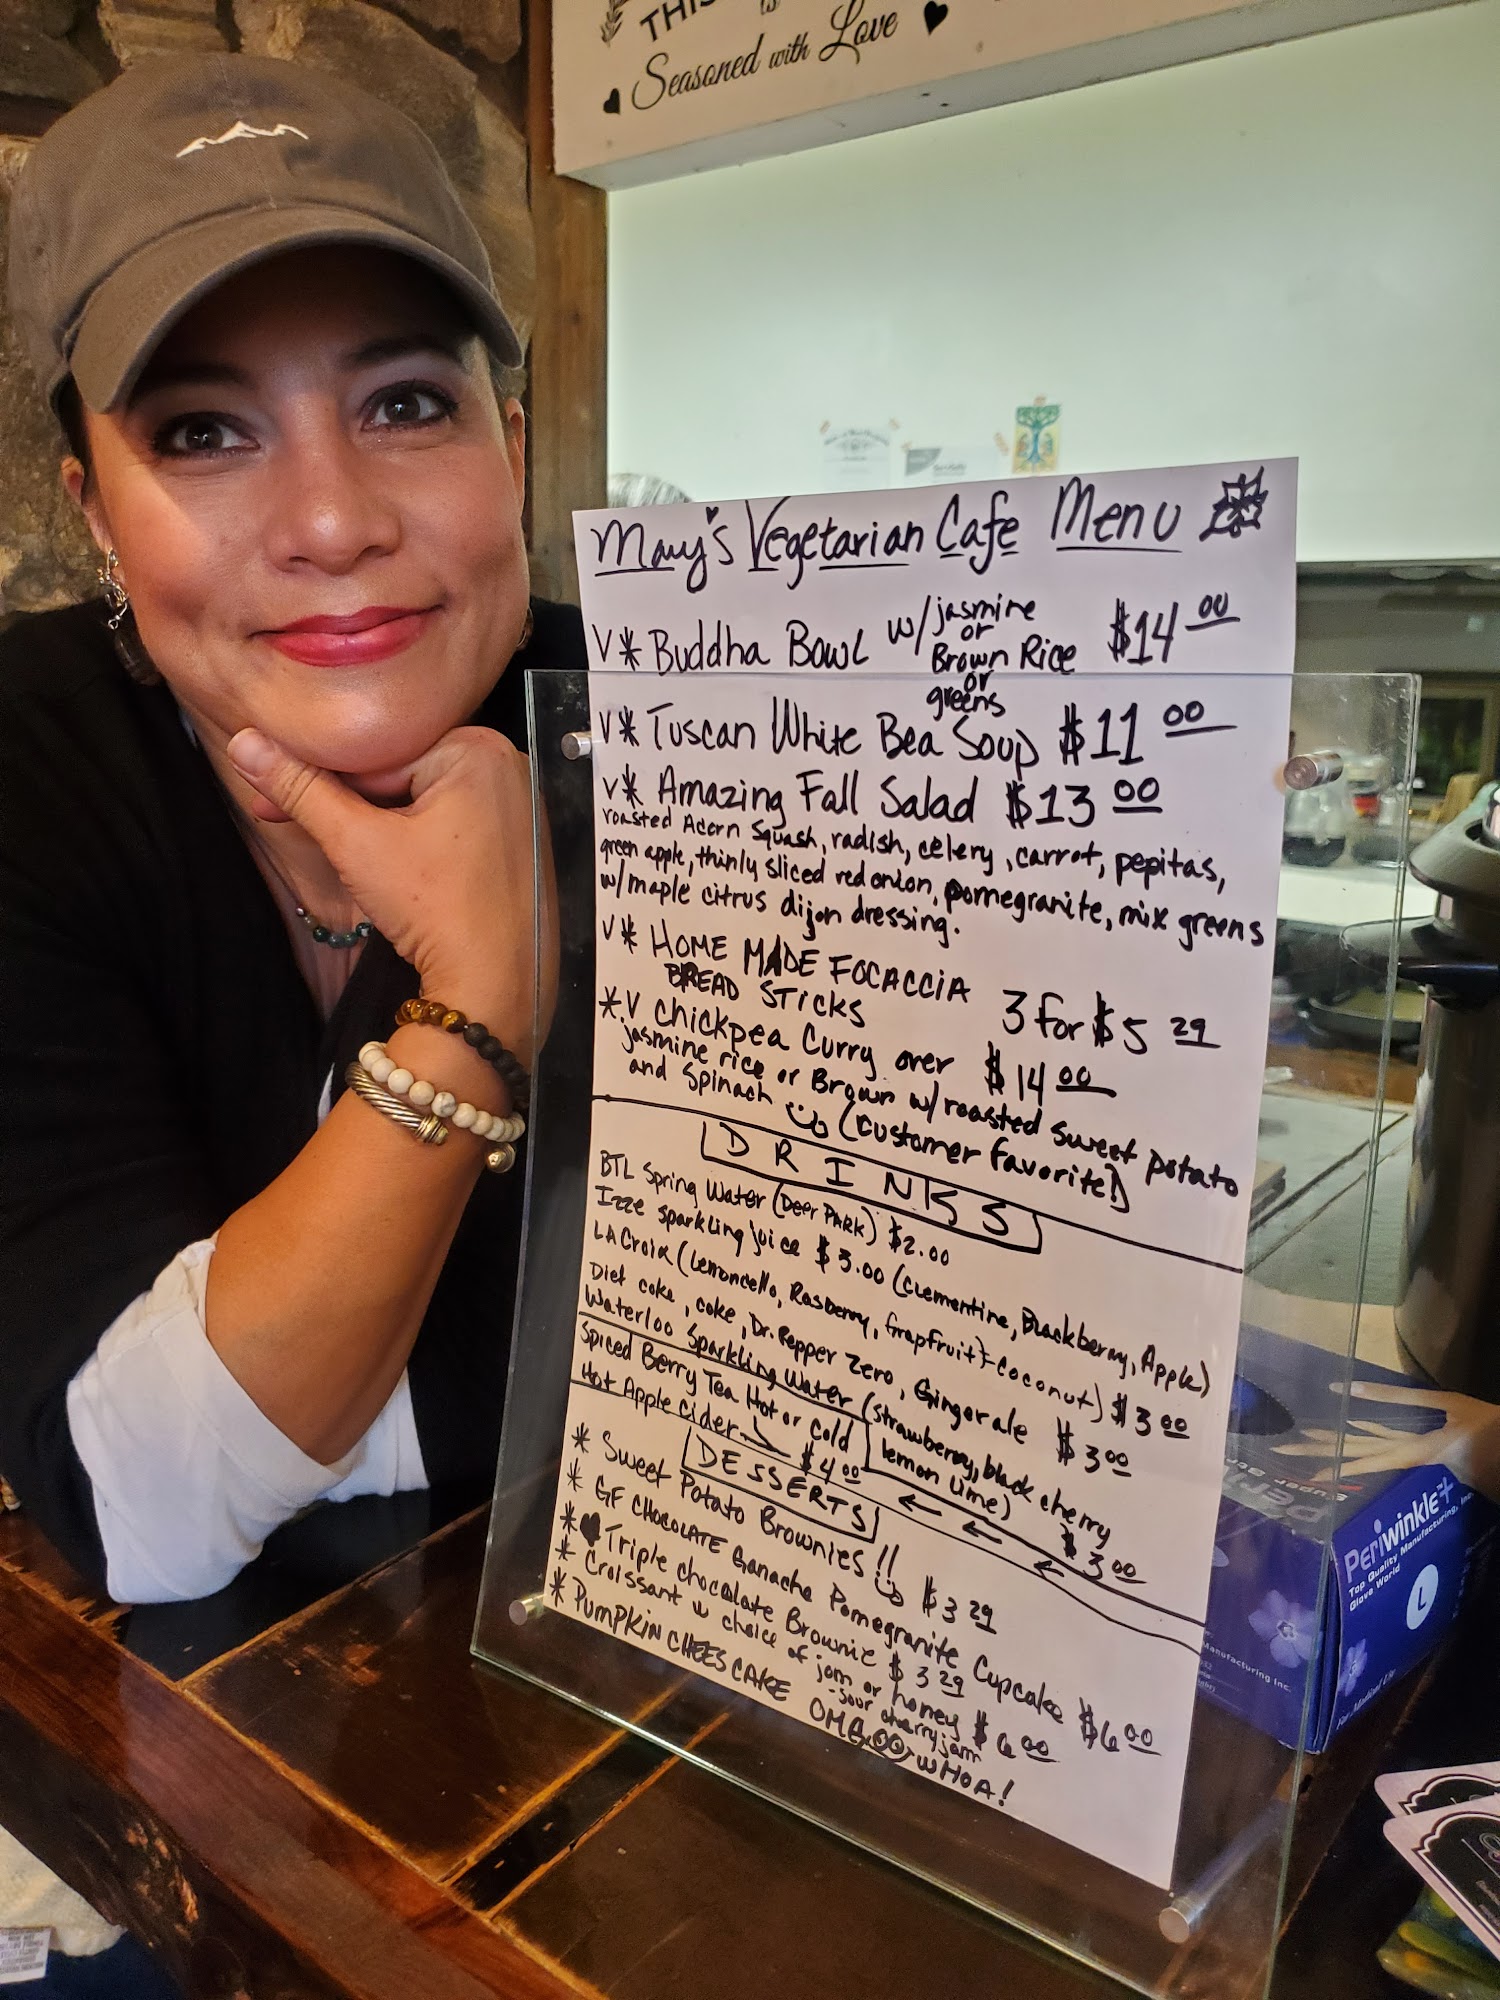 THIS
is
Seasoned with Love
Mary's Vegetarian Cafe Menu
V* Buddha Bowl w/ jasmine or Brown Rice or greens $14 00
V* Tuscan White Bea Soup $11 00
V* Amazing Fall Salad $13 00
roasted Acorn Squash, radish, celery, carrot, pepitas,
green apple, thinly sliced red onion, pomegranite, mix greens
w/maple citrus dijon dressing.
V* HOME MADE FOCACCIA
BREAD STICKS 3 for $5 29
*V Chickpea Curry over $14 00
jasmine rice or Brown w/roasted sweet potato
and Spinach (Customer favorite!)
DRINKS
BTL Spring Water (Deer PARK) $2.00
Izze sparkling juice $3.00 (Clementine, Blackberry, Apple)
LACroix (Lemoncello, Rasberry, Grapfruit, Coconut) $3 00
Diet coke, coke, Dr. Pepper Zero, Gingerale $3 00
Waterloo Sparkling Water (strawberry, black cherry
lemon lime) $3 00
Spiced Berry Tea Hot or Cold
Hot Apple Cider $4 00
DESSERTS
* Sweet Potato Brownies!! $3 29
* GF CHOCOLATE Ganache Pomegranite Cupcake $6 00
* Triple chocolate Brownie $3 29
* Croissant w choice of jam or honey $6 00
-sour cherry jam
* PUMPKIN CHEESCAKE OMG WHOA!
Periwinkle+
Top Quality Manufacturing, Inc.
Glove World
L
Manufacturing Inc.